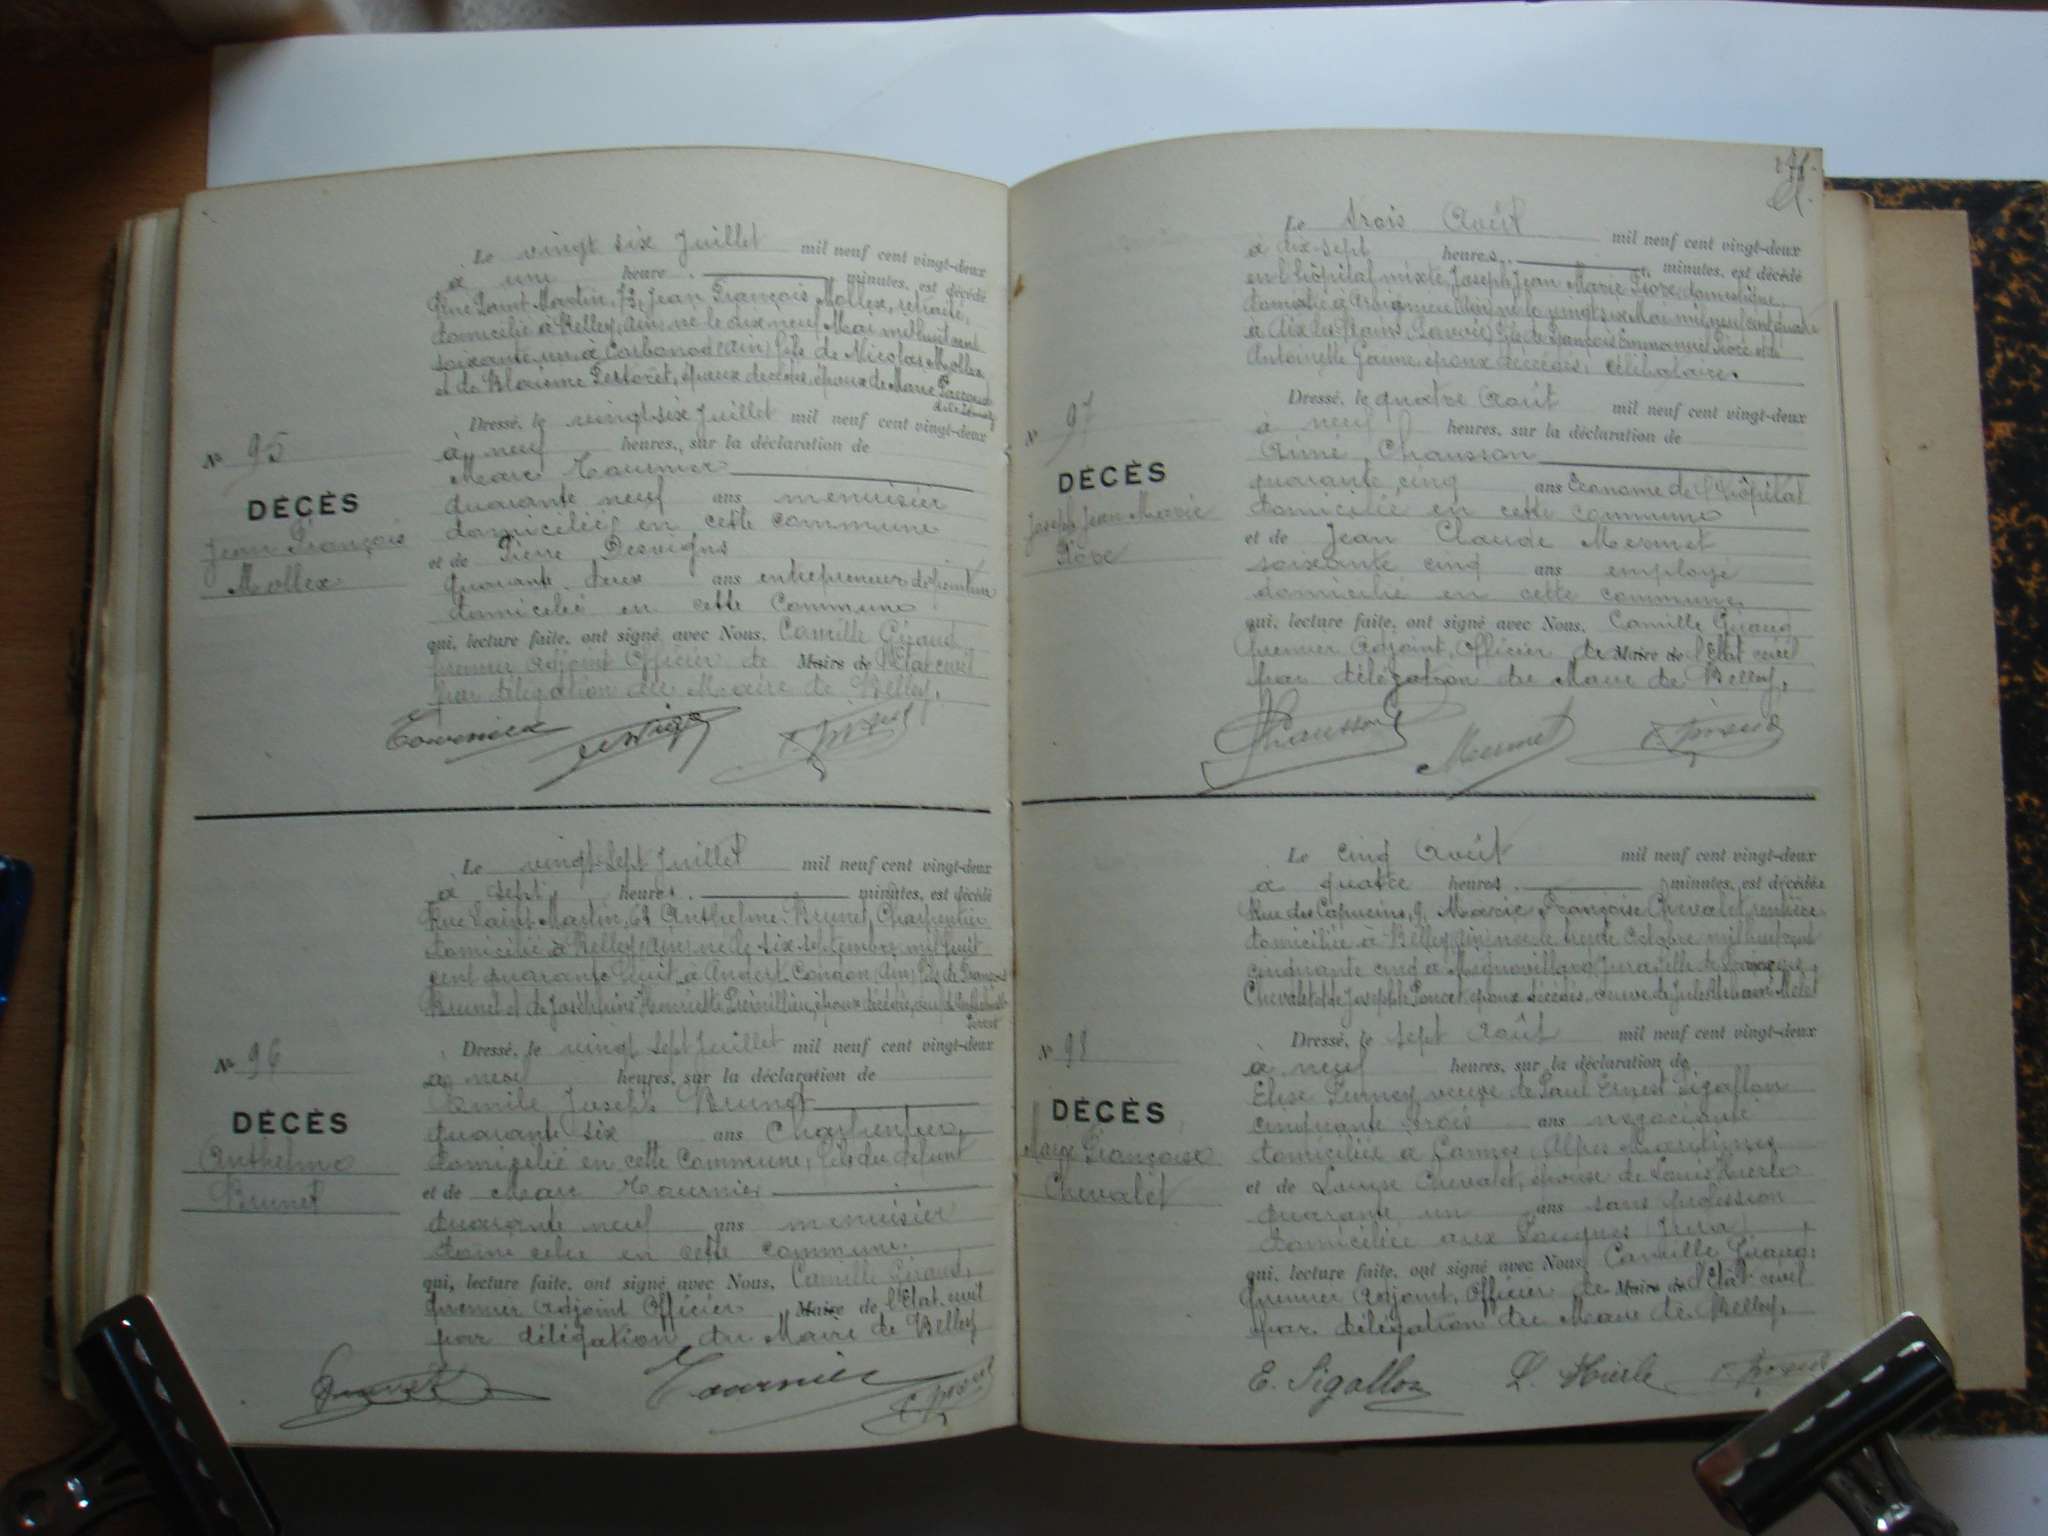 Le vingt six Juillet mil neuf cent vingt-deux
à une heure . minutes, est décédé
Rue Saint Martin, 72, Jean François Mollex, retraité,
domicilié à Belley, Ain, né le dix neuf Mai mil huit cent
soixante un à Corbonod (Ain) fils de Nicolas Mollex
et de époux décédés, époux de Marie
Dressé, le vingt six Juillet mil neuf cent vingt-deux
à neuf heures, sur la déclaration de
Marc Tournier
quarante neuf ans menuisier
domicilié en cette commune
et de Pierre Desvigns
quarante deux ans entrepreneur de peinture
domicilié en cette Commune
qui, lecture faite, ont signé avec Nous, Camille Giraud
premier Adjoint Officier de Maire de l'Etat civil
par délégation du Maire de Belley.
Tournier
N° 95
DÉCÈS
Jean François
Mollex
Le vingt-sept Juillet mil neuf cent vingt-deux
à sept heures . minutes, est décédé
Rue Saint Martin, 62 Anthelme Brunet, Charpentier
domicilié à Belley (Ain) né le six septembre mil huit
cent quarante huit à Andert Condon (Ain) fils de François
Brunet et de Joséphine Henriette époux décédés, veuf de
Dressé, le vingt sept Juillet mil neuf cent vingt-deux
à neuf heures, sur la déclaration de
Emile Joseph Brunet
quarante six ans Charpentier
domicilié en cette Commune, fils du défunt
et de Marc Tournier
quarante neuf ans menuisier
domicilié en cette commune.
qui, lecture faite, ont signé avec Nous, Camille Giraud,
premier Adjoint Officier Maire de l'Etat civil
par délégation du Maire de Belley
Brunet Tournier
N° 96
DÉCÈS
Anthelme
Brunet
Le trois Août mil neuf cent vingt-deux
à dix-sept heures . minutes, est décédé
en l'hôpital mixte, Joseph Jean Marie domestique,
domicilié à (Ain) né le vingt six Mai mil neuf cent quatre
à Aix les Bains (Savoie) fils de François Emmanuel et de
Antoinette époux décédés, célibataire.
Dressé, le quatre Août mil neuf cent vingt-deux
à neuf heures, sur la déclaration de
Aimé Chausson
quarante cinq ans économe de l'hôpital
domicilié en cette commune
et de Jean Claude Mermet
soixante cinq ans employé
domicilié en cette commune
qui, lecture faite, ont signé avec Nous, Camille Giraud
premier Adjoint, Officier de Maire de l'Etat civil
par délégation du Maire de Belley.
Chausson Mermet
N° 97
DÉCÈS
Joseph Jean Marie
Le cinq Août mil neuf cent vingt-deux
à quatre heures . minutes, est décédée
Rue des Capucins, 9, Marie Françoise Chevalet, rentière
domiciliée à Belley (Ain) née le trente Octobre mil huit cent
cinquante cinq à Mignovillard Jura fille de
Chevalet et de Josephte Poncet, époux décédés, veuve de Jules
Dressé, le sept Août mil neuf cent vingt-deux
à neuf heures, sur la déclaration de
Elise veuve de Paul Ernest Sigallon
cinquante trois ans négociante
domiciliée à Cannes Alpes Maritimes
et de Louise Chevalet, épouse de Louis Hierle
quarante un ans sans profession
domiciliée aux (Jura)
qui, lecture faite, ont signé avec Nous, Camille Giraud,
premier Adjoint, Officier de Maire de l'Etat civil
par délégation du Maire de Belley.
E. Sigallon L. Hierle
N° 98
DÉCÈS
Marie Françoise
Chevalet